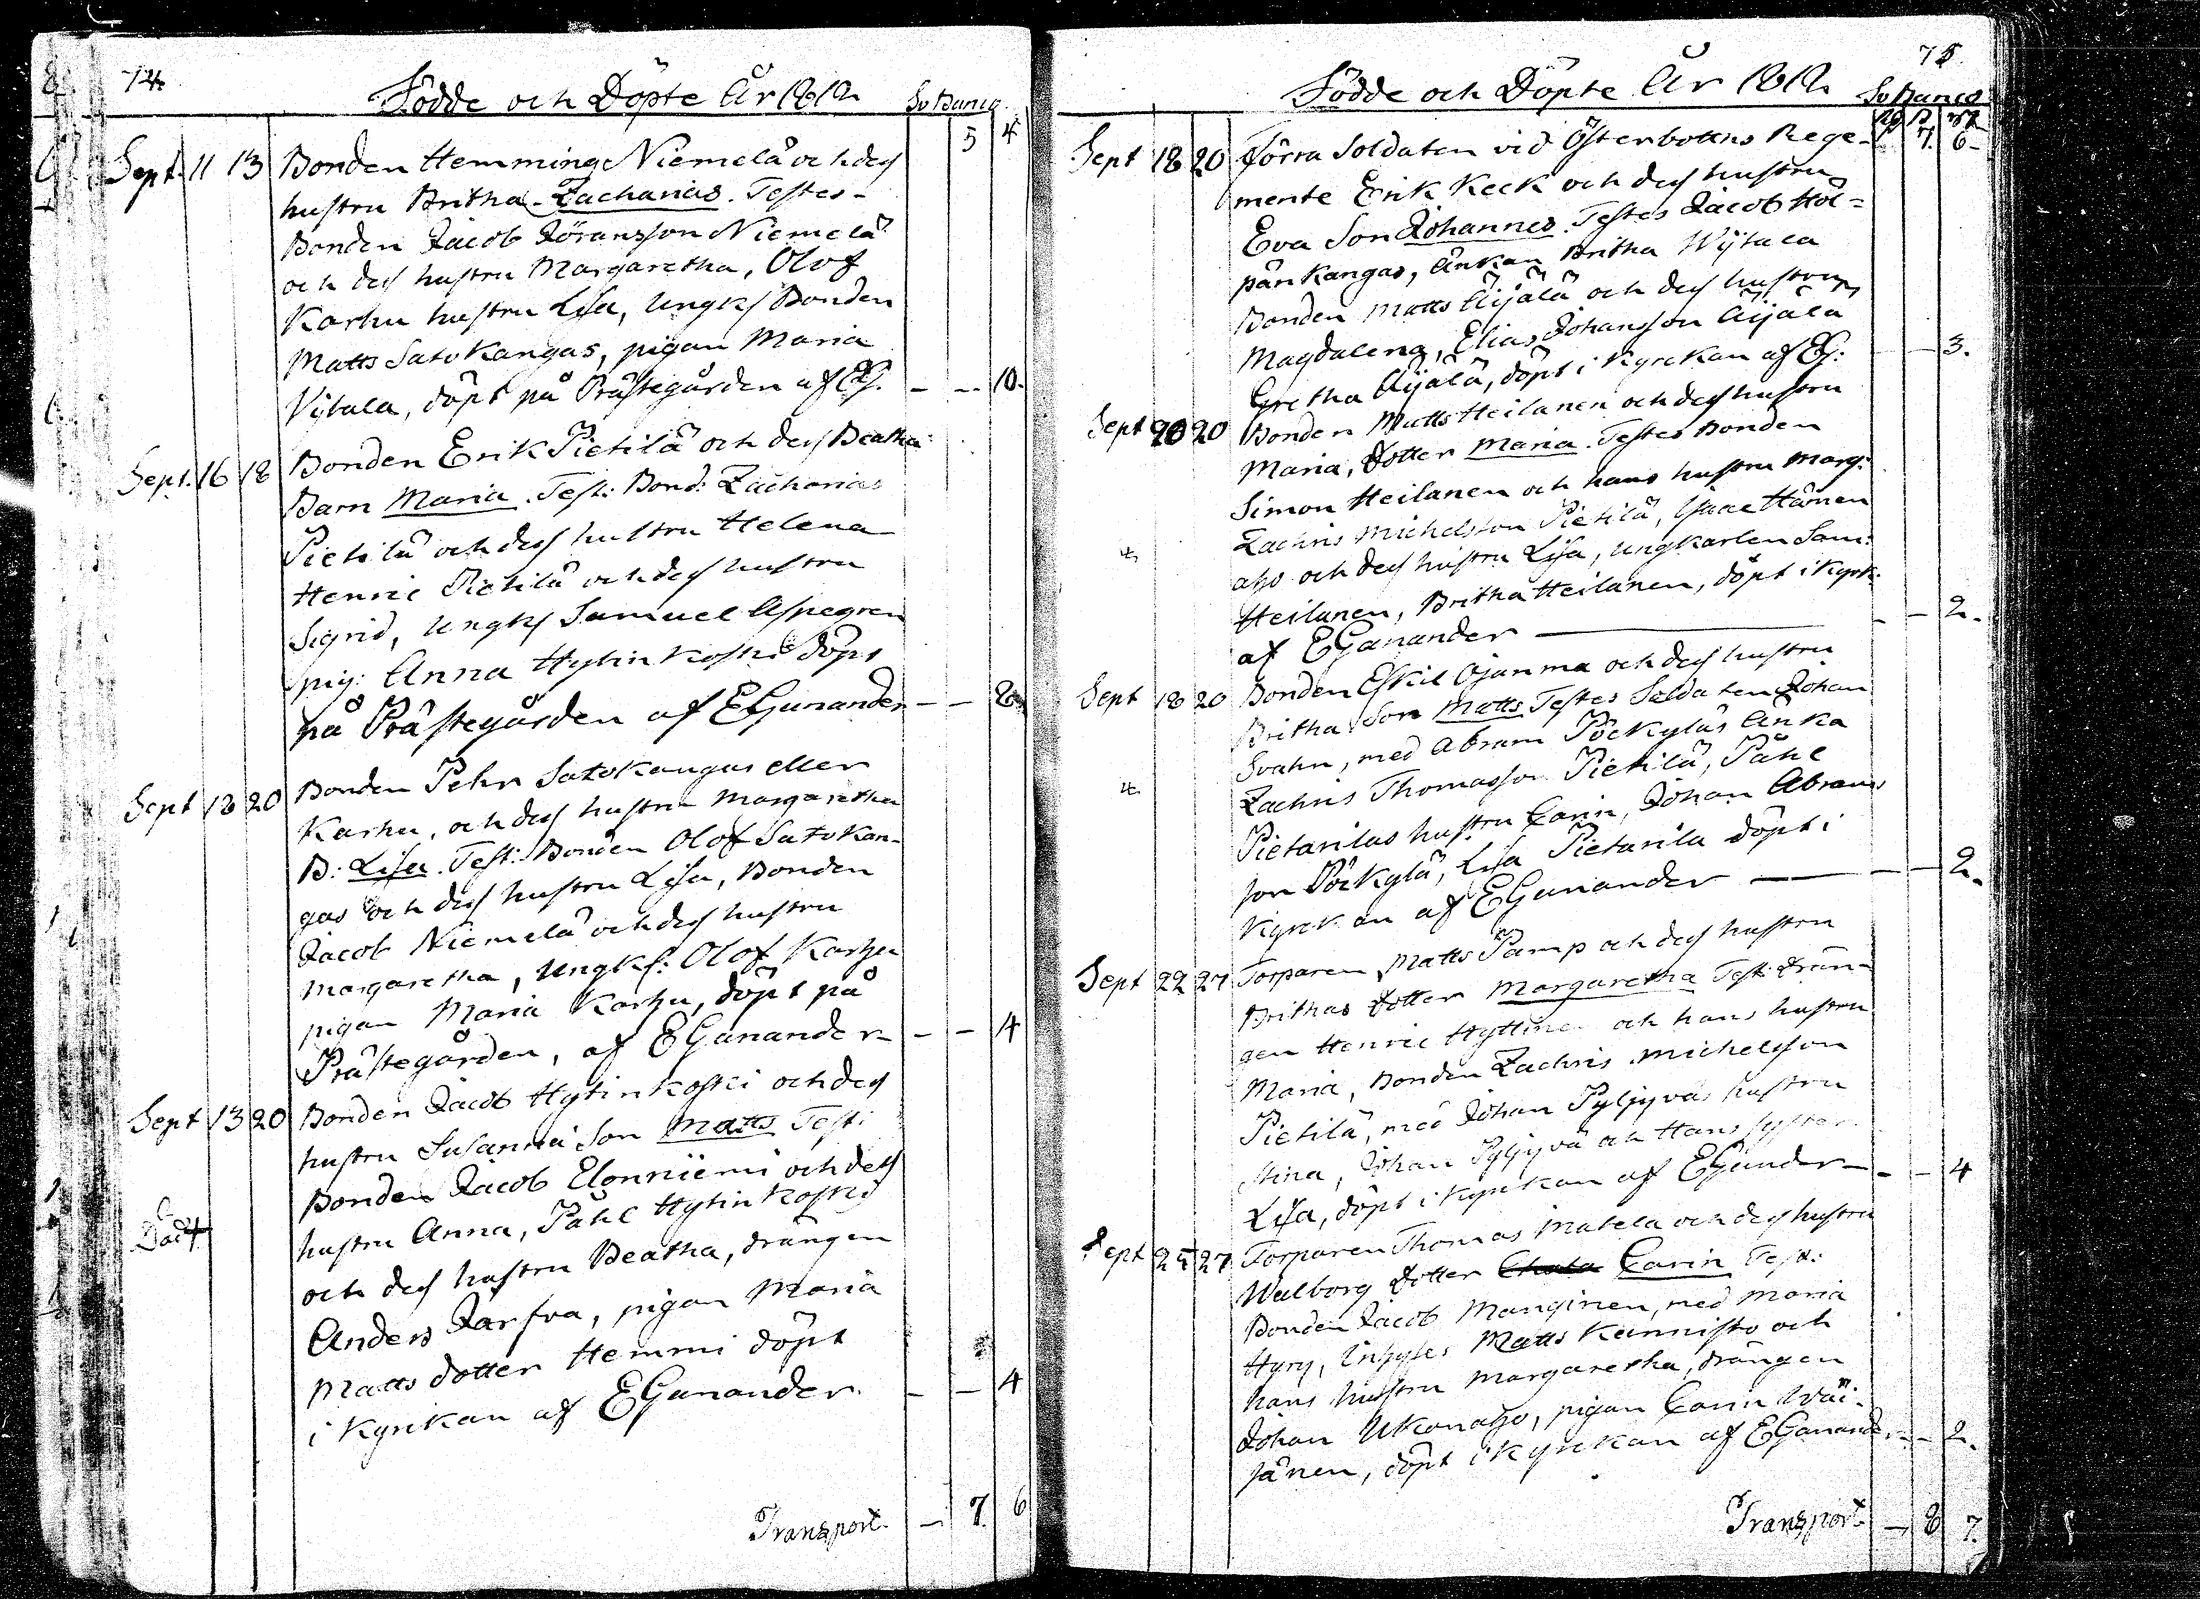 74.
Födde och Döpte År 1812
Sv Banco
5 4
Sept. 11 13 Bonden Hemming Niemelä och dess
hustru Britha. Zacharias. Testes-
Bonden Jacob Göransson Niemelä
och dess hustru Margaretha, Olof
Karhu hustru Lisa, Ungks Bonden
Matts Satokangas, pigan Maria
Vijtala, döpt på Prästegården af EG. - -- 10.
Sept. 16 18 Bonden Erik Pietilä och dess Beatha:
Barn Maria. Test: Bond: Zacharias
Pietilä och dess hustru Helena
Henric Pietilä och dess hustru
Sigrid, Ungks Samuel Aspegren
pig: Anna Hytinkoski döpt
på Prästegården af EGanander - -
Sept 18 20 Bonden Pehr Satokangas eller
Karhu, och dess hustru Margaretha
B: Lisa. Test: Bonden Olof Satokan-
gas och dess hustru Lisa, Bonden
Jacob Niemelä och dess hustru
Margaretha, Ungks: Olof Karhu
pigan Maria Karhu, döpt på
Prästegården, af EGanander - - 4
Sept 13 20 Bonden Jacob Hytinkoski och dess
hustru Susanna Son Matts Test:
Bonden Jacob Elonniemi och dess
Död
hustru Anna, Påhl Hytinkoskis
och dess hustru Beatha, drängen
Anders Jarfva, pigan Maria
Matts dotter Hemmi döpt
i Kyrikan af EGanander. - - 4
Transport. - 7. 6
75.
Födde och Döpte År 1812
Sv Banco
7. 6
Sept 18 20 Förra Soldaten vid Österbottns Rege-
mente Erik Keck och dess hustru
Eva Son Johannes. Testes Jacob Höl=
pänkangas, Änkan Britha Wijtala
Bonden Matts Äijälä och dess hustru
Magdalena, Elias Johansson Äijälä
Gretha Äijälä, döpt i Kyrckan af EG: - - 3.
Sept 20 20 Bonden Matts Heilanen och dess hustru
Maria, dotter Maria. Testes Bonden
Simon Heilanen och hans hustru Marg:
Zachris Michelsson Pietilä, Isaac Hämen
aho och dess hustru Lisa, ungkarlen Sam:
Heilanen, Britha Heilanen, döpt i Kyrk:
af EGanander - - 2.
Sept 18 20 Bonden Eskil Ojanma och dess hustru
Britha Son Matts Testes Soldaten Johan
Svahn, med Abram Pöckyläs Änka
Zachris Thomasson Pietilä, Påhl
Pietarilas hustru Carin, Johan Abrams
son Pöckylä, Lisa Pietarila döpt i
Kyrckan af EGanander - - 2.
Sept 22 27 Torparen Matts Pamp och dess hustru
Brithas dotter Margaretha Test: drän-
gen Henric Hyttinen och hans hustru
Maria, Bonden Zachris Michelsson
Pietilä, med Johan Pyljyväs hustru
Stina, Johan Pyljyvä och Hans syster
Lisa, döpt i Kyrckan af EGander - - 4
Sept 25 27 Torparen Thomas Matela och dess hustru
Walborg dotter Carin Test:
Bonden Jacob Manginen, med Maria
Hyry, Inhyses Matts Kannisto och
hans hustru Margaretha, drängen
Johan Ukonaho, pigan Carin Wäi-
sänen, döpt i Kyrckan af EGanander - - 2.
Transport - 8 7.